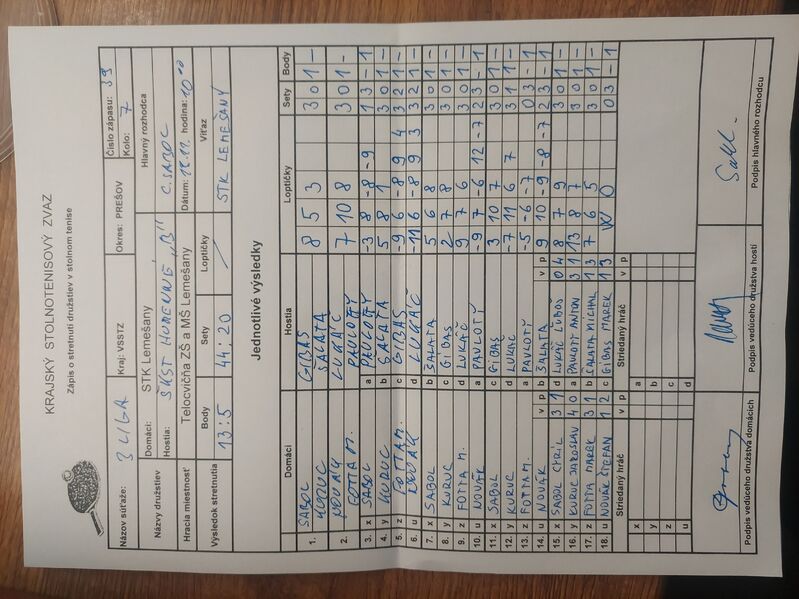 KRAJSKÝ STOLNOTENISOVÝ ZVAZ
Zápis o stretnutí družstiev v stolnom tenise
Názov súťaže: 3 LIGA Kraj: VSSTZ Okres: PREŠOV Číslo zápasu: 39
Kolo: 7
Názvy družstiev Domáci: STK Lemešany Hlavný rozhodca
Hostia: ŠKST HUMENNÉ "B" C. SABOL
Hracia miestnosť Telocvičňa ZŠ a MŠ Lemešany Dátum: hodina: 10 00
Výsledok stretnutia Body Sety Loptičky Víťaz
13:5 44:20 STK LEMEŠANY
Jednotlivé výsledky
Domáci Hostia Loptičky Sety Body
1. SABOL KURUC GIBAS ŠALATA 8 5 3 3 0 1 -
2. NOVÁK FOTTA M. LUKÁČ PAVLOTY 7 10 8 3 0 1 -
3. x SABOL a PAVLOTY -3 8 -8 -9 1 3 - 1
4. y KURUC b ŠALATA 5 8 1 3 0 1 -
5. z FOTTA M. c GIBAS -9 6 -8 9 4 3 2 1 -
6. u NOVÁK d LUKÁČ -11 6 -8 9 3 3 2 1 -
7. x SABOL b ŠALATA 5 6 8 3 0 1 -
8. y KURUC c GIBAS 2 7 8 3 0 1 -
9. z FOTTA M. d LUKÁČ 9 7 6 3 0 1 -
10. u NOVÁK a PAVLOTY -9 7 -6 12 -7 2 3 - 1
11. x SABOL c GIBAS 3 10 7 3 0 1 -
12. y KURUC d LUKÁČ -7 11 6 7 3 1 1
13. z FOTTA M. a PAVLOTY -5 -6 -7 0 3 - 1
14. u NOVÁK b ŠALATA 9 10 -9 -8 -7 2 3 - 1
v p v p
15. x SABOL CYRIL 3 1 d LUKÁČ ĽUBOŠ 0 4 8 7 9 3 0 1 -
16. y KURUC JAROSLAV 4 0 a PAVLOTY ANTON 3 1 13 8 7 3 0 1 -
17. z FOTTA MAREK 3 1 b ŠALATA MICHAL 1 3 7 6 5 3 0 1 -
18. u NOVÁK ŠTEFAN 1 2 c GIBAS MAREK 1 3 W O 0 3 - 1
Striedaný hráč v p Striedaný hráč v p
x a
y b
z c
u d
Podpis vedúceho družstva domácich Podpis vedúceho družstva hostí Podpis hlavného rozhodcu